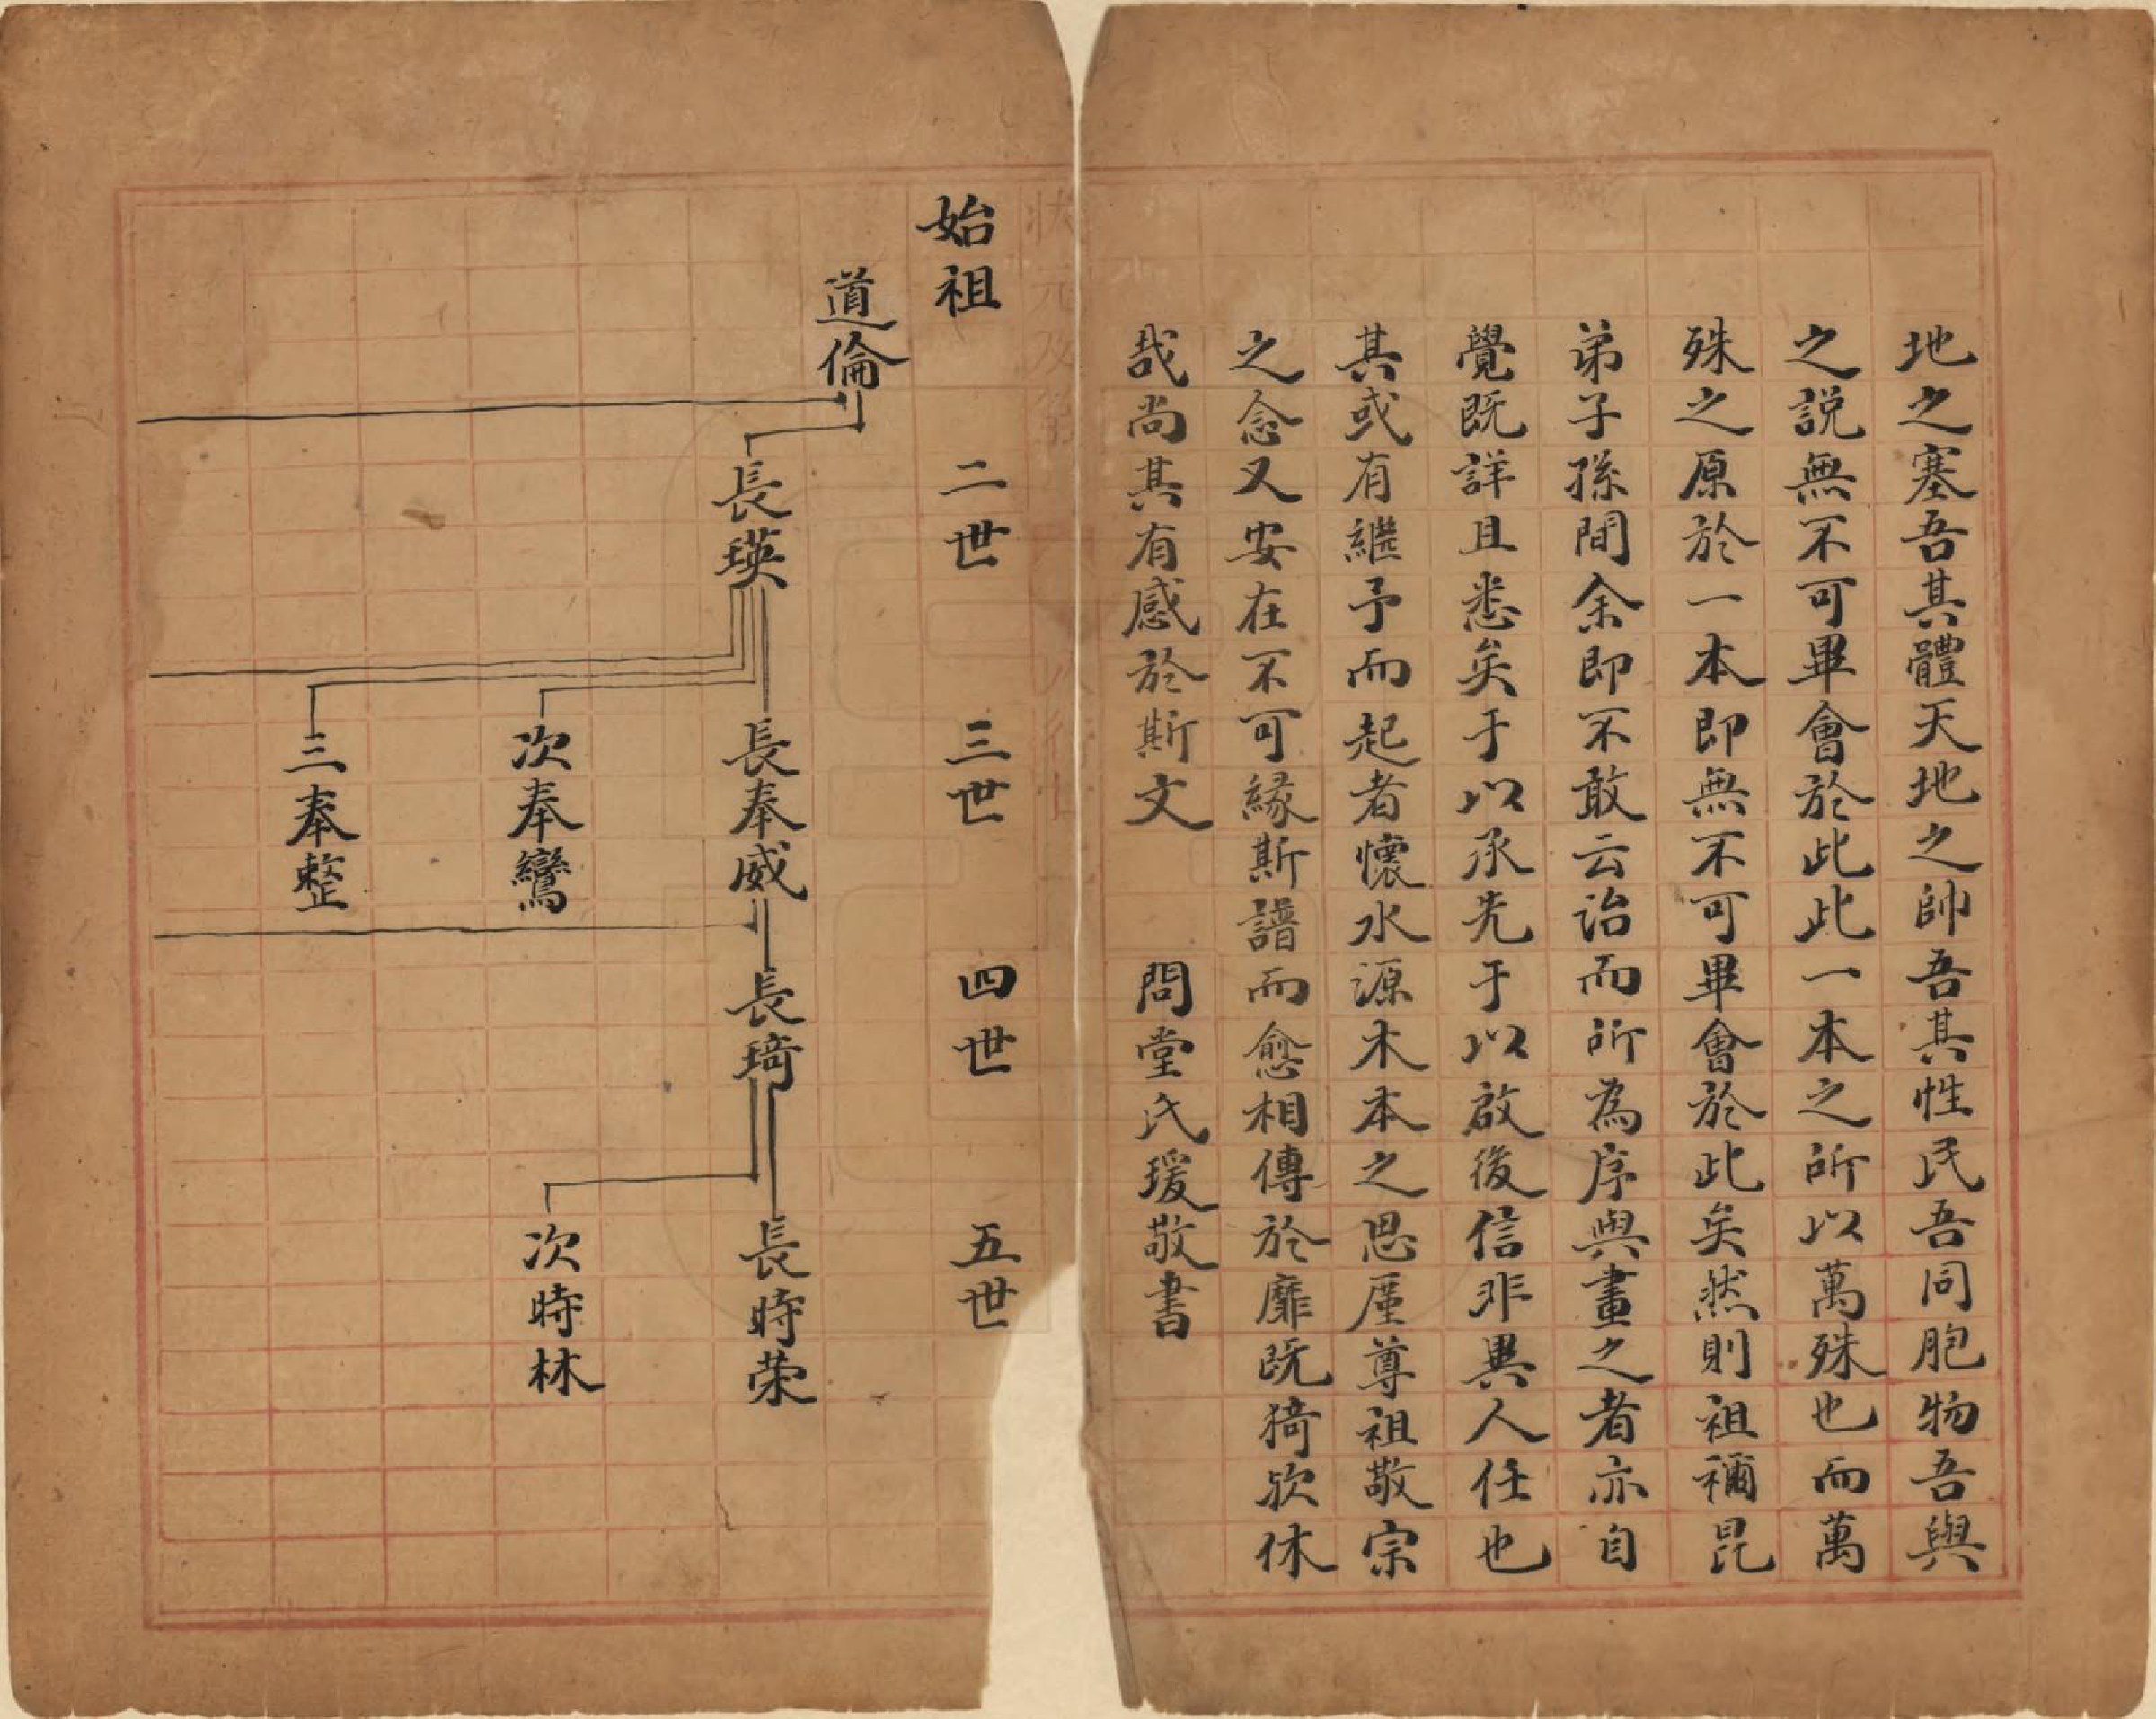 地之塞吾其體天地之帥吾其性民吾同胞物吾與
之説無不可畢會於此此一本之所以萬殊也而萬
殊之原於一本即無不可畢會於此矣然則祖禰昆
弟子孫間余即不敢云詒而所為序與畫之者亦自
覺既詳且悉矣于以承先于以啟後信非異人任也
其或有繼予而起者懷水源木本之思厪尊祖敬宗
之念又安在不可緣斯譜而愈相傳於靡既猗歟休
哉尚其有感於斯文　問堂氏瑗敬書
始祖　二世　三世　四世　五世
道倫
長瑛　長奉威　長琦　長時荣
次奉鸞　次時林
三奉整